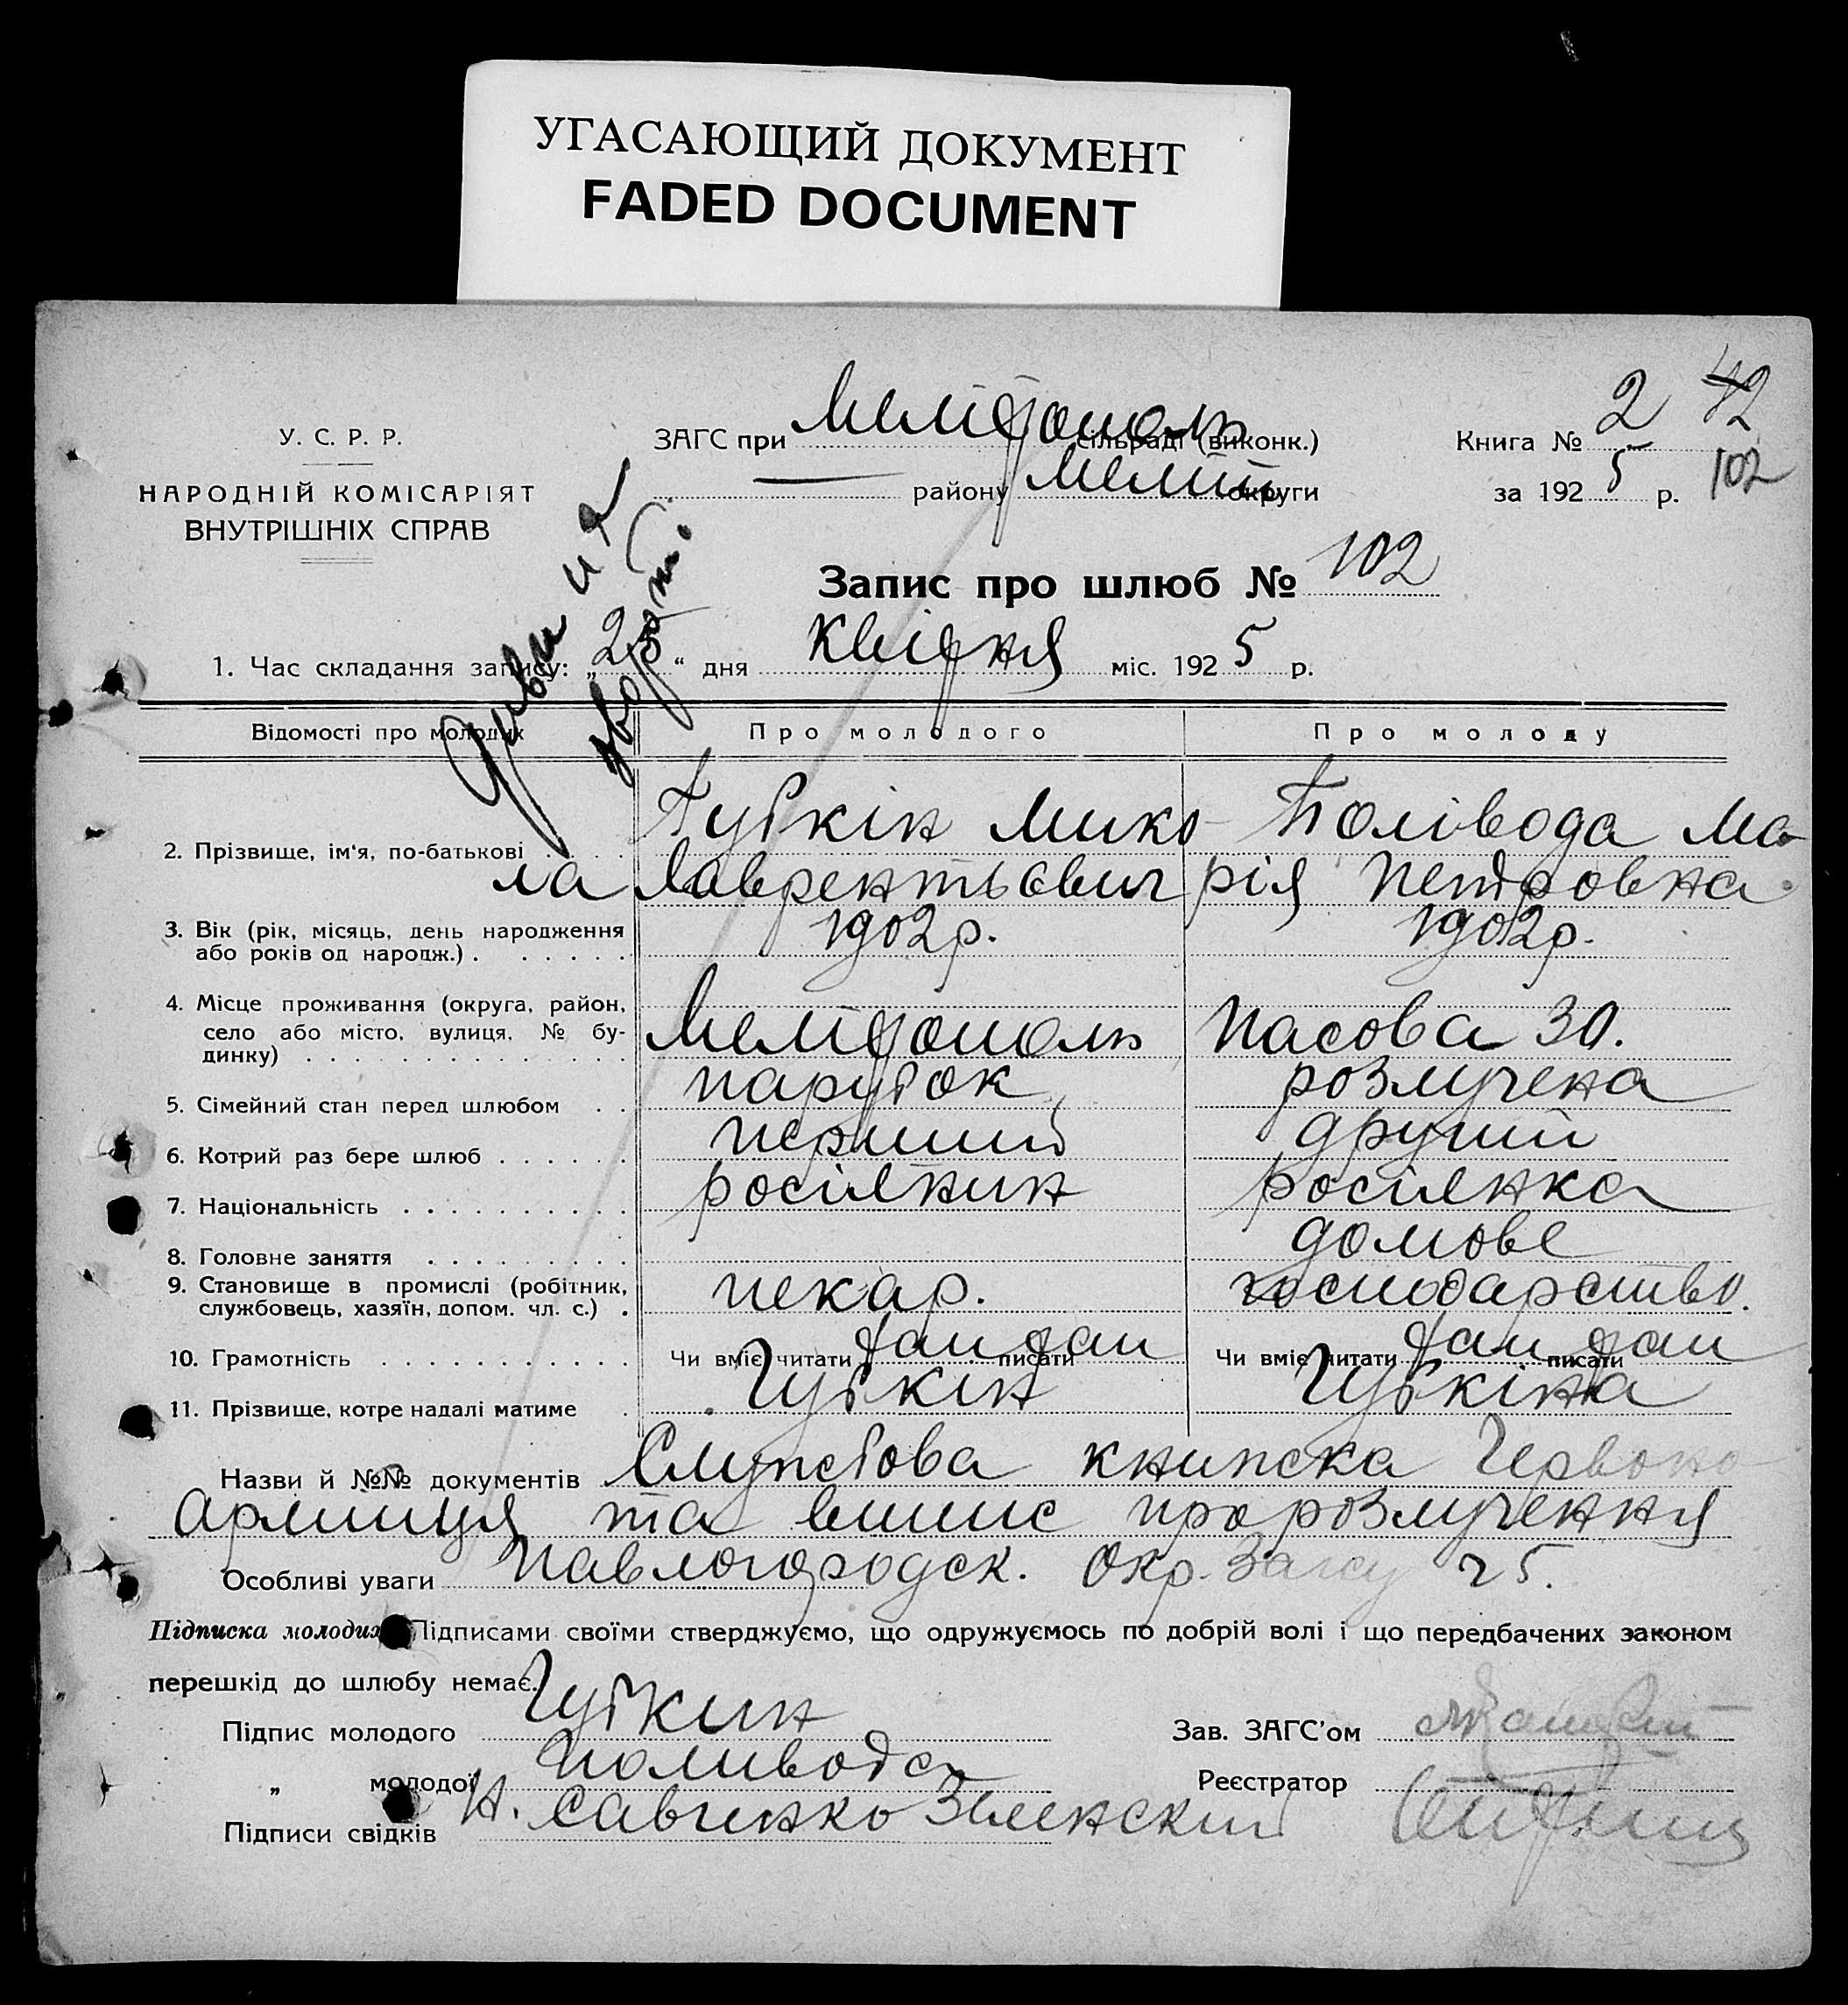 УГАСАЮЩИЙ ДОКУМЕНТ
FADED DOCUMENT
У. С. Р. Р.
НАРОДНІЙ КОМІСАРІЯТ
ВНУТРІШНІХ СПРАВ
ЗАГС при Мелітополь сільраді (виконк.)
— району Меліт. округи
Книга № 2 42
за 192 5 р. 102
Диви на звороті.
Запис про шлюб № 102
1. Час складання запису: „ 25 “ дня квітня міс. 192 5 р.
Відомості про молодих Про молодого Про молоду
2. Прізвище, ім‘я, по-батькові . . . . Губкін Мико- Полівода Ма-
ла Лаврентьєвич рія Петровна.
3. Вік (рік, місяць, день народження 1902р. 1902р.
або років од народж.) . . . . . .
4. Місце проживання (округа, район,
село або місто, вулиця, № бу- Мелітополь Пасова 30.
динку) . . . . . . . . . . . . . .
5. Сімейний стан перед шлюбом . . парубок, розлучена
6. Котрий раз бере шлюб . . . . . . перший другий
7. Національність . . . . . . . . . . росіянин росіянка
8. Головне заняття . . . . . . . . . домове
9. Становище в промислі (робітник, пекар. господарство.
службовець, хазяїн, допом. чл. с.) .
10. Грамотність . . . . . . . . . . . Чи вміє читати так писати так Чи вміє читати так писати так
11. Прізвище, котре надалі матиме . Губкін Губкіна
Назви й №№ документів Службова книжка Червоно-
армийця та випис про розлучення
Особливі уваги Павлоградск. Окр. Загсу 25.
Підписка молодих. Підписами своїми стверджуємо, що одружуємось по добрій волі і що передбачених законом
перешкід до шлюбу немає.
Підпис молодого Губкин Зав. ЗАГС'ом
„ молодої Поливода Реєстратор
Підписи свідків Н. Савченко Зеленский